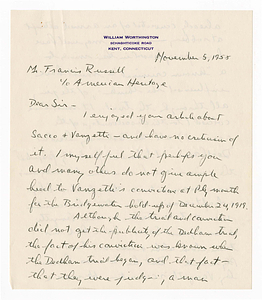 WILLIAM WORTHINGTON
SCHAGHTICOKE ROAD
KENT, CONNECTICUT
November 5, 1958
Mr. Francis Russell
c/o American Heritage
Dear Sir -
I enjoyed your article about
Sacco & Vanzetti - and have no criticism
of it. I myself feel that perhaps you
and many others do not give ample
heed to Vanzetti's conviction at Plymouth
for the Bridgewater hold up of December 24, 1919.
Although the trial and conviction
did not get the publicity of the Dedham trial,
the fact of his conviction was known when
the Dedham trial began, and that fact -
that they were judging a man